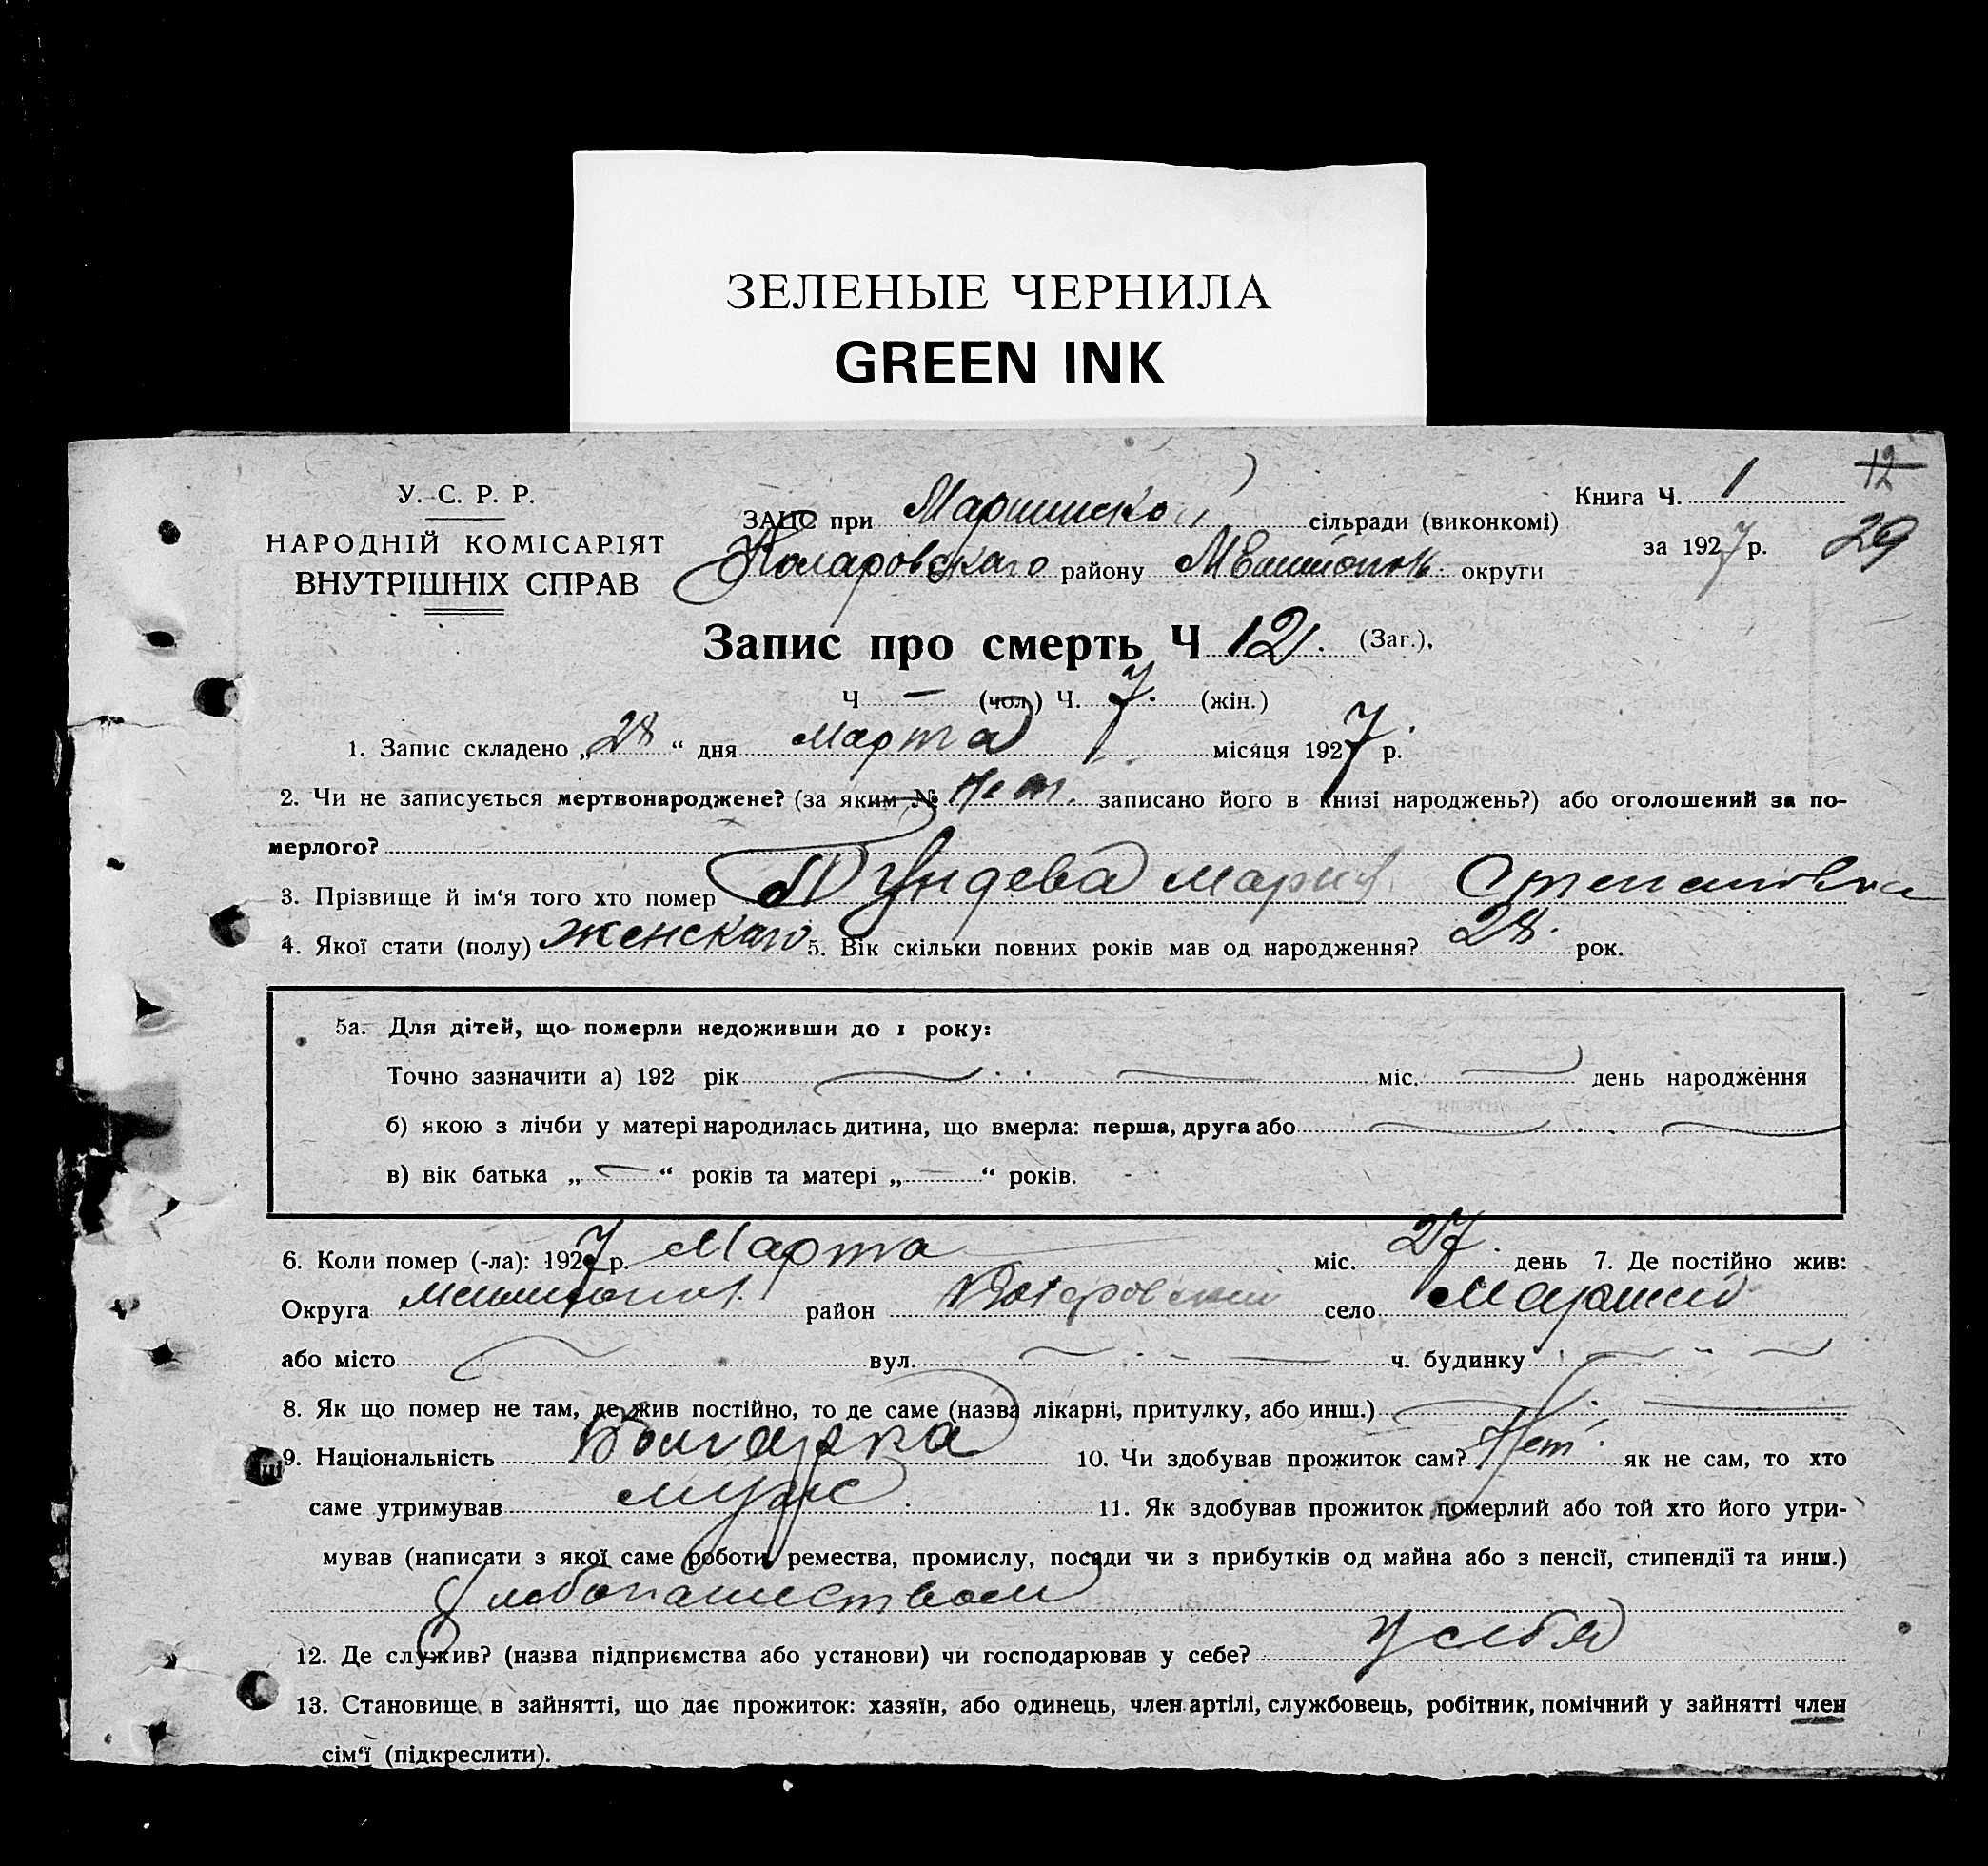 ЗЕЛЕНЫЕ ЧЕРНИЛА
GREEN INK
У. С. Р. Р.
НАРОДНІЙ КОМІСАРІЯТ
ВНУТРІШНІХ СПРАВ
ЗАЦС при сільради (виконкомі)
Коларовскаго району округи
Книга Ч. 1
за 1927 р.
12
29
Запис про смерть Ч 12. (Заг.),
Ч — (чол) Ч. 7. (жін.)
1. Запис складено „28“ дня Марта місяця 1927 р.
2. Чи не записується мертвонароджене? (за яким № Нет. записано його в книзі народжень?) або оголошений за по-
мерлого?
3. Прізвище й ім‘я того хто помер Мария Степановна
4. Якої стати (полу) женскаго 5. Вік скільки повних років мав од народження? 28. рок.
5а. Для дітей, що померли недоживши до 1 року:
Точно зазначити а) 192 рік — — міс. — день народження
б) якою з лічби у матері народилась дитина, що вмерла: перша, друга або — —
в) вік батька „—“ років та матері „—“ років.
6. Коли помер (-ла): 1927 р. Марта міс. 27. день 7. Де постійно жив:
Округа район село
або місто — вул. — — ч. будинку — —
8. Як що помер не там, де жив постійно, то де саме (назва лікарні, притулку, або инш.) — —
9. Національність Болгарка 10. Чи здобував прожиток сам? Нет. як не сам, то хто
саме утримував муж 11. Як здобував прожиток померлий або той хто його утри-
мував (написати з якої саме роботи, ремества, промислу, посади чи з прибутків од майна або з пенсії, стипендії та инш.)
хлебопашеством
12. Де служив? (назва підприємства або установи) чи господарював у себе? у себя
13. Становище в зайнятті, що дає прожиток: хазяїн, або одинець, член артілі, службовець, робітник, помічний у зайнятті член
сім‘ї (підкреслити).